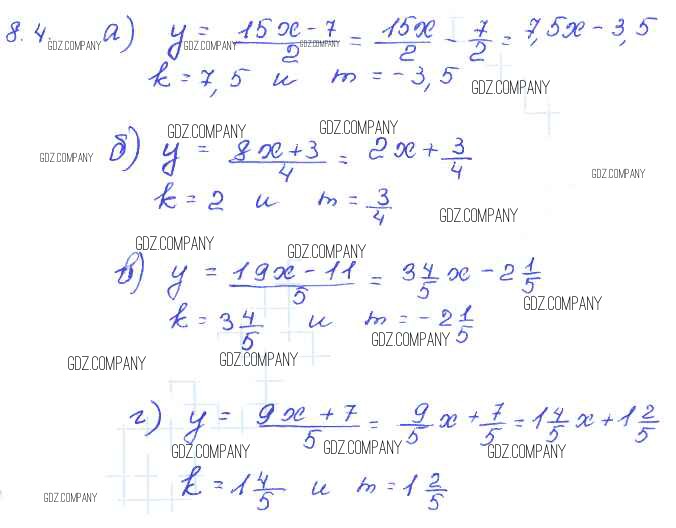 8.4. а) y = (15x - 7)/2 = 15x/2 - 7/2 = 7,5x - 3,5
GDZ.COMPANY GDZ.COMPANY GDZ.COMPANY
k = 7,5 и m = -3,5
GDZ.COMPANY
GDZ.COMPANY GDZ.COMPANY
GDZ.COMPANY б) y = (8x + 3)/4 = 2x + 3/4
GDZ.COMPANY
k = 2 и m = 3/4
GDZ.COMPANY
GDZ.COMPANY GDZ.COMPANY
в) y = (19x - 11)/5 = 3 4/5 x - 2 1/5
GDZ.COMPANY
k = 3 4/5 и m = -2 1/5
GDZ.COMPANY
GDZ.COMPANY GDZ.COMPANY
г) y = (9x + 7)/5 = 9/5 x + 7/5 = 1 4/5 x + 1 2/5
GDZ.COMPANY GDZ.COMPANY GDZ.COMPANY
k = 1 4/5 и m = 1 2/5
GDZ.COMPANY